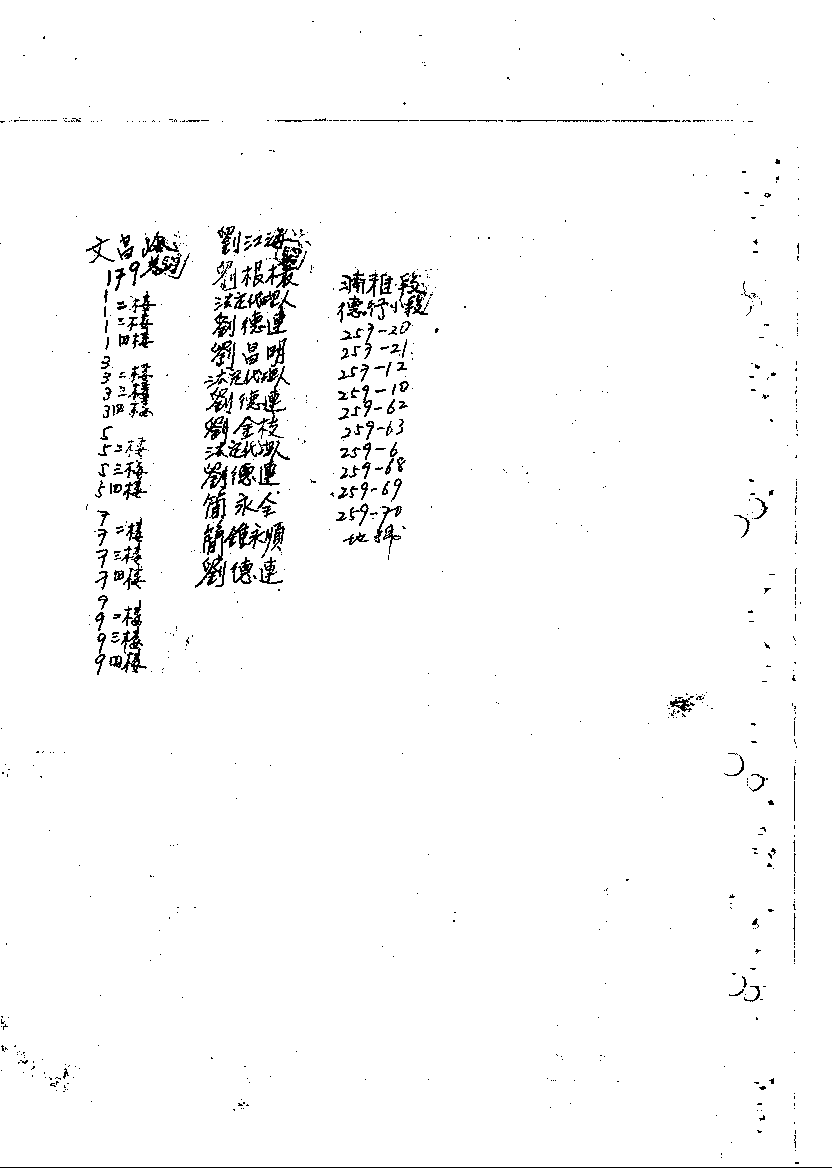 文昌路
179巷
1
1 二樓
1 三樓
1 四樓
3
3 二樓
3 三樓
3 四樓
5
5 二樓
5 三樓
5 四樓
7
7 二樓
7 三樓
7 四樓
9
9 二樓
9 三樓
9 四樓
劉江海
劉根
法定代理人
劉德連
劉昌明
法定代理人
劉德連
劉金枝
法定代理人
劉德連
簡永全
簡鍾永順
劉德連
湳雅段
德行小段
259-20
259-21
259-12
259-10
259-62
259-63
259-6
259-68
259-69
259-70
地號